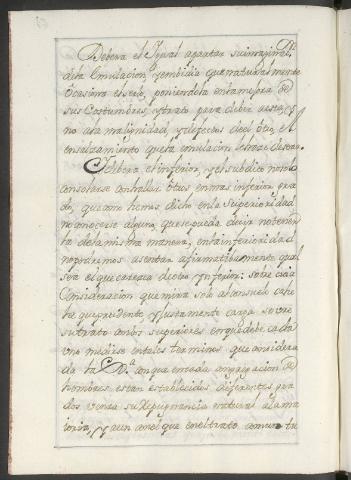 Debera el Igual apartar su imaginat.
dela Emulacion, y embidia que naturalmente
ocasiona esselo, poniendola en la mejora de
sus Costumbres, y trato para deber a esto, y
no ala malignidad, y defectos del otro, el
ensalzamiento que la emulacion le hace desear.
Debera, el inferior, y el subdito no
consolarse con hallar otros en mas inferior gra
do, que como hemos dicho en la Superioridad
no conocerse alguno, que se pueda decir no tener
la de la misma manera, en la inferioridad
no podremos acertar afirmativamente qual
sea el que caresca de otro Ynferior: sobre cuia
Consideracion que mira solo al consuelo cabe
ha que prudente, y justamente cargar sobre
su trato con los superiores en que debe cada
uno medirse en tales terminos que considera
da la con que en cada congregacion de
hombres estan establecidos diferentes gra
dos venza su Repugnancia natural a la ma
ioria, y aun con el que en el trato comun tu